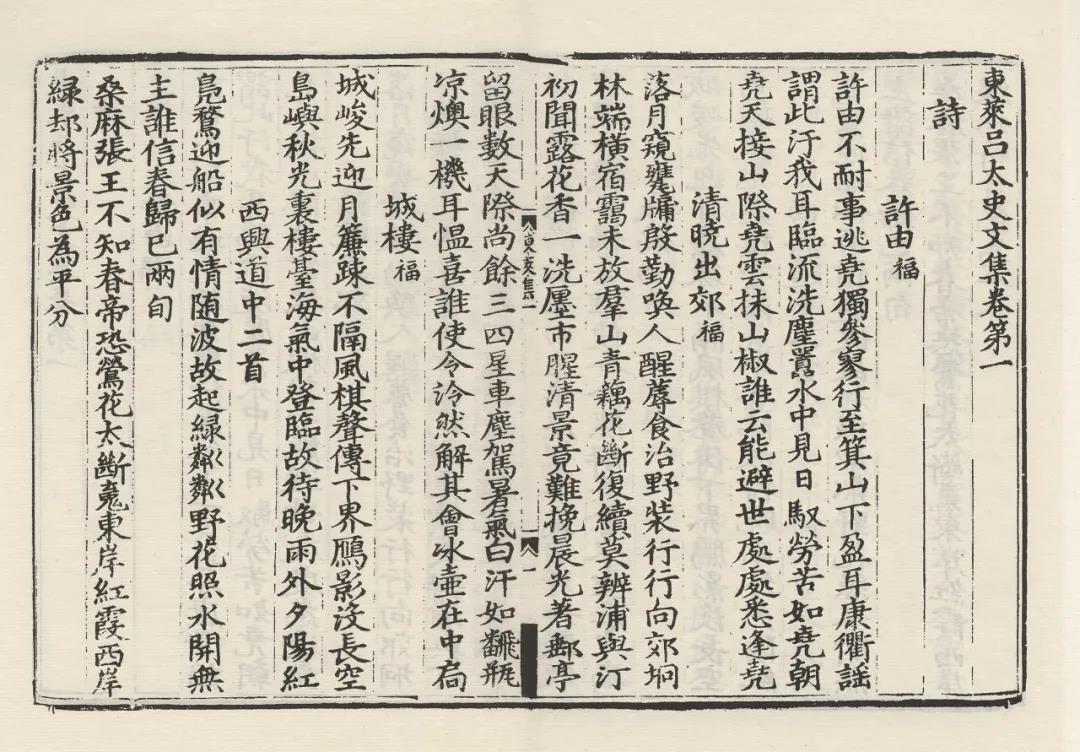 東萊呂太史文集卷第一
詩
許由 福
許由不耐事逃堯獨參寥行至箕山下盈耳康衢謡
謂此汙我耳臨流洗塵囂水中見日馭勞苦如堯朝
堯天接山際堯雲抹山椒誰云能避世處處悉逢堯
清曉出郊 福
落月窺甕牖殷勤喚人醒蓐食治野装行行向郊坰
林端横宿靄未放羣山青藕花斷復續莫辨浦與汀
初聞露花香一洗廛市腥清景竟難挽晨光著郵亭
留眼數天際尚餘三四星車塵駕暑氣白汗如飜瓶
凉燠一機耳愠喜誰使令泠然解其會冰壺在中扃
城樓 福
城峻先迎月簾踈不隔風棋聲傳下界鴈影沒長空
島嶼秋光裏樓臺海氣中登臨故待晚雨外夕陽紅
西興道中二首
鳬鶩迎船似有情随波故起緑粼粼野花照水開無
主誰信春歸已兩旬
桑麻張王不知春帝恐鶯花太斷䰟東岸紅霞西岸
緑却將景色為平分